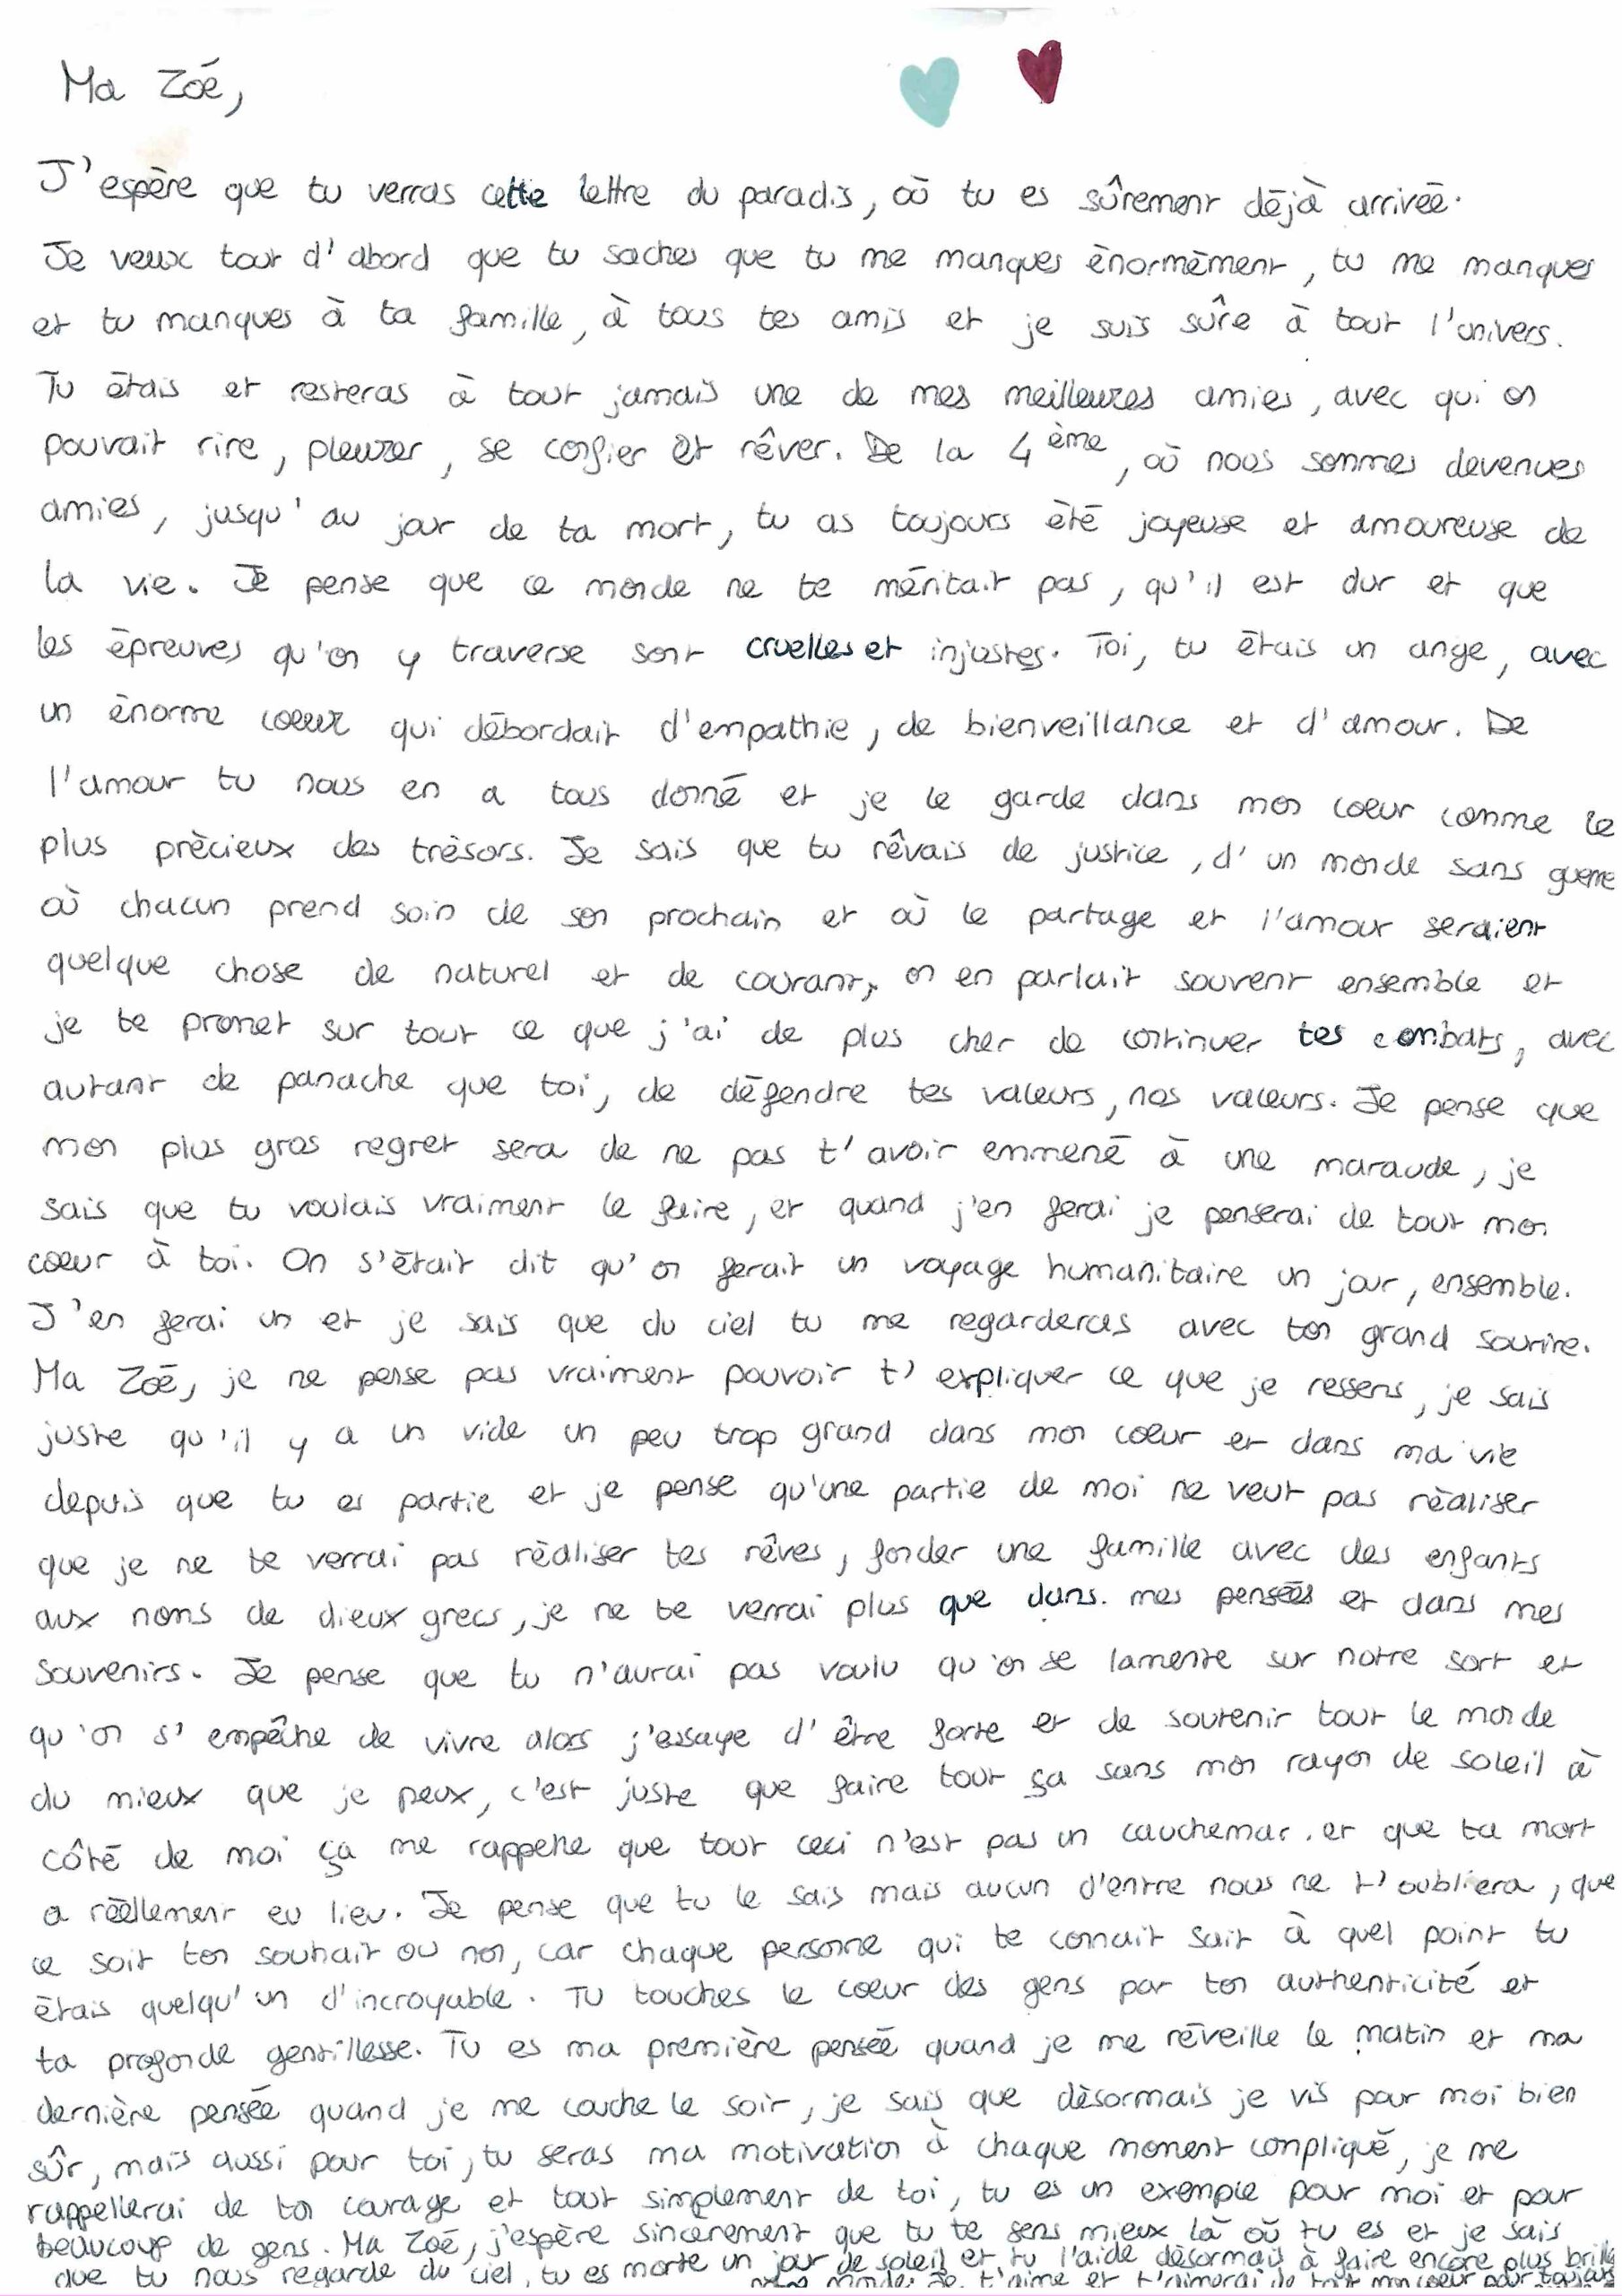 Ma Zoé,
J'espère que tu verras cette lettre du paradis, où tu es sûrement déjà arrivée.
Je veux tout d'abord que tu saches que tu me manques énormément, tu me manques
et tu manques à ta famille, à tous tes amis et je suis sûre à tout l'univers.
Tu étais et resteras à tout jamais une de mes meilleures amies, avec qui on
pouvait rire, pleurer, se confier et rêver. De la 4ème, où nous sommes devenues
amies, jusqu'au jour de ta mort, tu as toujours été joyeuse et amoureuse de
la vie. Je pense que ce monde ne te méritait pas, qu'il est dur et que
les épreuves qu'on y traverse sont cruelles et injustes. Toi, tu étais un ange, avec
un énorme coeur qui débordait d'empathie, de bienveillance et d'amour. De
l'amour tu nous en a tous donné et je le garde dans mon coeur comme le
plus précieux des trésors. Je sais que tu rêvais de justice, d'un monde sans guerre
où chacun prend soin de son prochain et où le partage et l'amour seraient
quelque chose de naturel et de courant, on en parlait souvent ensemble et
je te promet sur tout ce que j'ai de plus cher de continuer tes combats, avec
autant de panache que toi, de défendre tes valeurs, nos valeurs. Je pense que
mon plus gros regret sera de ne pas t'avoir emmené à une maraude, je
sais que tu voulais vraiment le faire, et quand j'en ferai je penserai de tout mon
coeur à toi. On s'était dit qu'on ferait un voyage humanitaire un jour, ensemble.
J'en ferai un et je sais que du ciel tu me regarderas avec ton grand sourire.
Ma Zoé, je ne pense pas vraiment pouvoir t'expliquer ce que je ressens, je sais
juste qu'il y a un vide un peu trop grand dans mon coeur et dans ma vie
depuis que tu es partie et je pense qu'une partie de moi ne veut pas réaliser
que je ne te verrai pas réaliser tes rêves, fonder une famille avec des enfants
aux noms de dieux grecs, je ne te verrai plus que dans mes pensées et dans mes
souvenirs. Je pense que tu n'aurai pas voulu qu'on se lamente sur notre sort et
qu'on s'empêche de vivre alors j'essaye d'être forte et de soutenir tout le monde
du mieux que je peux, c'est juste que faire tout ça sans mon rayon de soleil à
côté de moi ça me rappelle que tout ceci n'est pas un cauchemar et que ta mort
a réellement eu lieu. Je pense que tu le sais mais aucun d'entre nous ne t'oubliera, que
ce soit ton souhait ou non, car chaque personne qui te connait sait à quel point tu
étais quelqu'un d'incroyable. Tu touches le coeur des gens par ton authenticité et
ta profonde gentillesse. Tu es ma première pensée quand je me réveille le matin et ma
dernière pensée quand je me couche le soir, je sais que désormais je vis pour moi bien
sûr, mais aussi pour toi, tu seras ma motivation à chaque moment compliqué, je me
rappellerai de ton courage et tout simplement de toi, tu es un exemple pour moi et pour
beaucoup de gens. Ma Zoé, j'espère sincèrement que tu te sens mieux là où tu es et je sais
que tu nous regarde du ciel, tu es morte un jour de soleil et tu l'aide désormais à faire encore plus briller
monde. Je t'aime et t'aimerai de tout mon coeur pour toujours